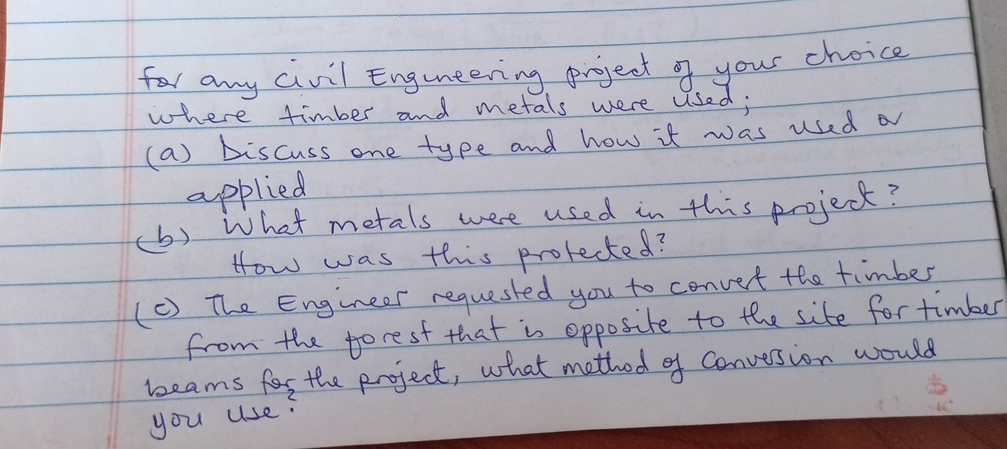 for any Civil Engineering project of your choice
where timber and metals were used;
(a) Discuss one type and how it was used or
applied
(b) What metals were used in this project?
How was this protected?
(c) The Engineer requested you to convert the timber
from the forest that is opposite to the site for timber
beams for the project, what method of conversion would
you use?